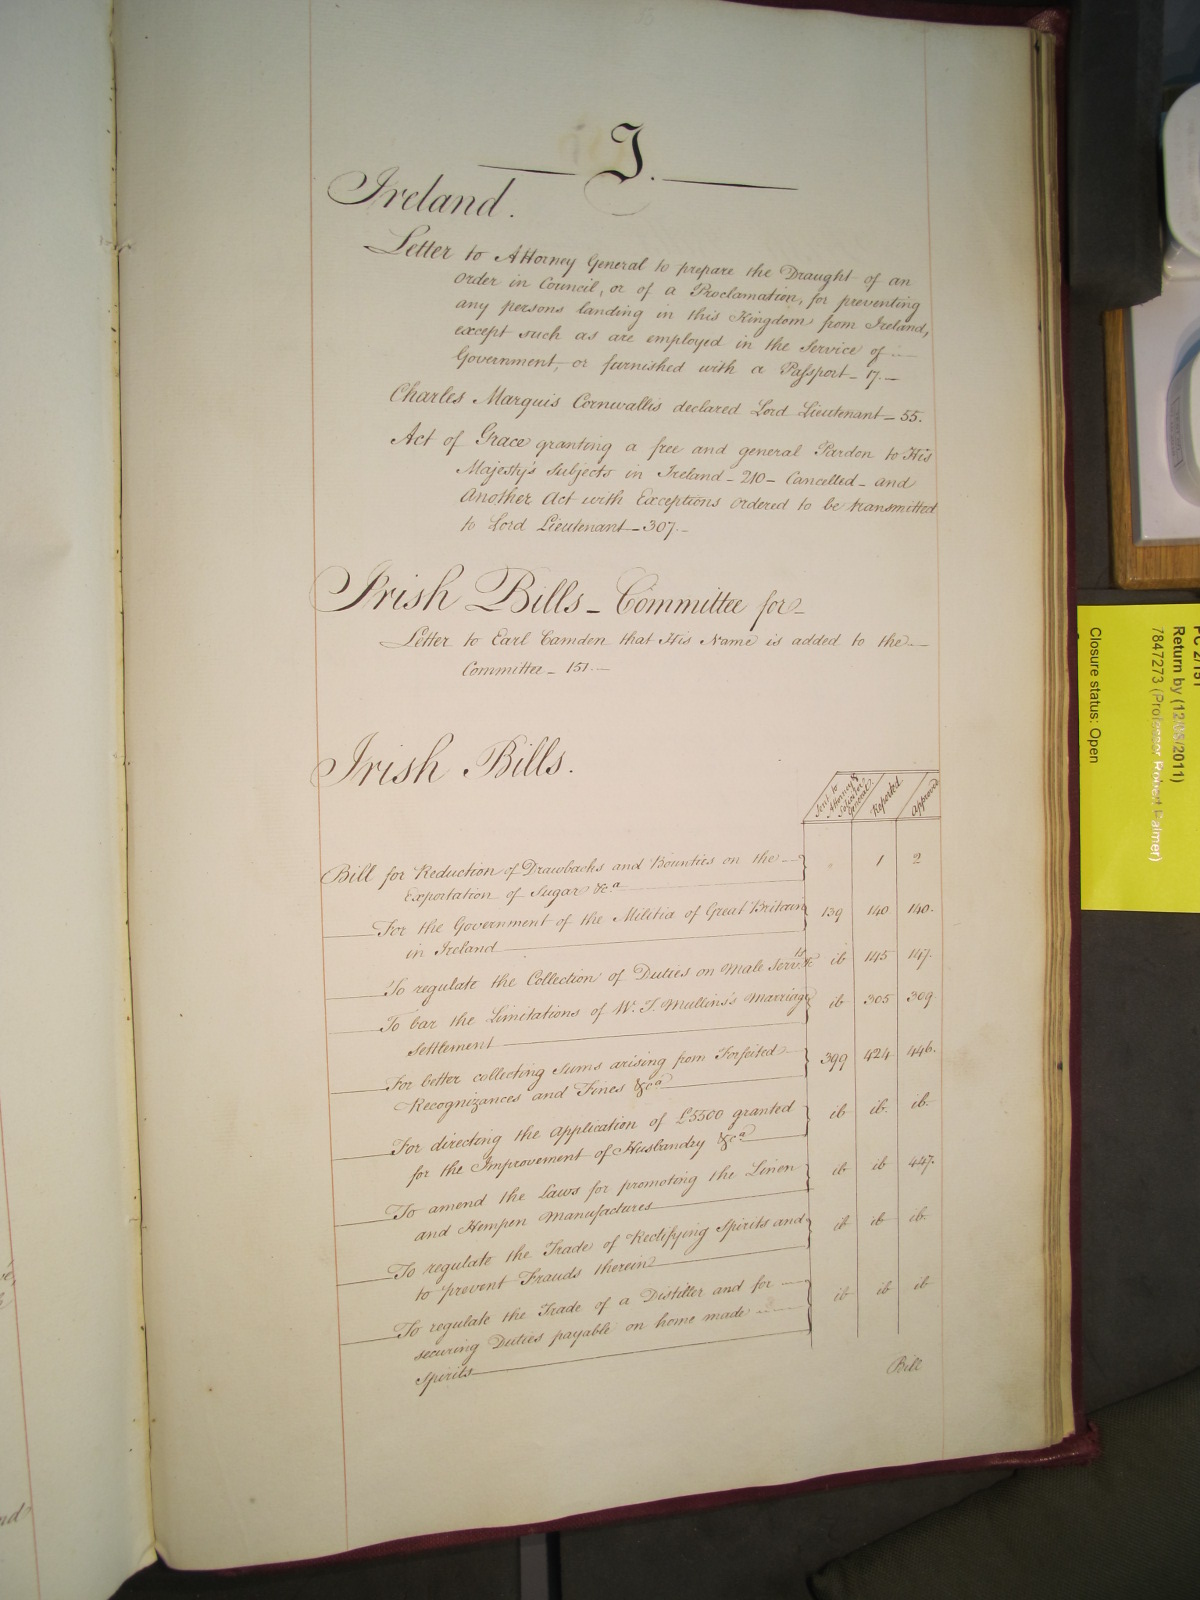 I.
Ireland.
Letter to Attorney General to prepare the Draught of an
Order in Council, or of a Proclamation, for preventing
any persons landing in this Kingdom from Ireland,
except such as are employed in the Service of
Government, or furnished with a Passport - 17. -
Charles Marquis Cornwallis declared Lord Lieutenant - 55.
Act of Grace granting a free and general Pardon to His
Majesty's Subjects in Ireland - 210 - Cancelled - and
Another Act with Exceptions ordered to be transmitted
to Lord Lieutenant - 307. -
Irish Bills - Committee for -
Letter to Earl Camden that His Name is added to the
Committee - 151. -
Irish Bills.
Sent to Attorney & Solicitor General. Reported. Approved
Bill for Reduction of Drawbacks and Bounties on the 1 2
Exportation of Sugar &c.a
For the Government of the Militia of Great Britain 139 140 140.
in Ireland
To regulate the Collection of Duties on Male Serv.ts &c ib 145 147.
To bar the Limitations of W. T. Mullins's Marriage ib 305 309
Settlement
For better collecting Sums arising from Forfeited 399 424 446.
Recognizances and Fines &c.a
For directing the Application of £5500 granted ib ib. ib.
for the Improvement of Husbandry &c.a
To amend the Laws for promoting the Linen ib ib 447.
and Hempen Manufactures
To regulate the Trade of Rectifying Spirits and ib ib ib.
to prevent Frauds therein
To regulate the Trade of a Distiller and for ib ib ib
securing Duties payable on home made
Spirits
Bill
PC 2/151
Return by (12/08/2011)
7847273 (Professor Robert Palmer)
Closure status: Open